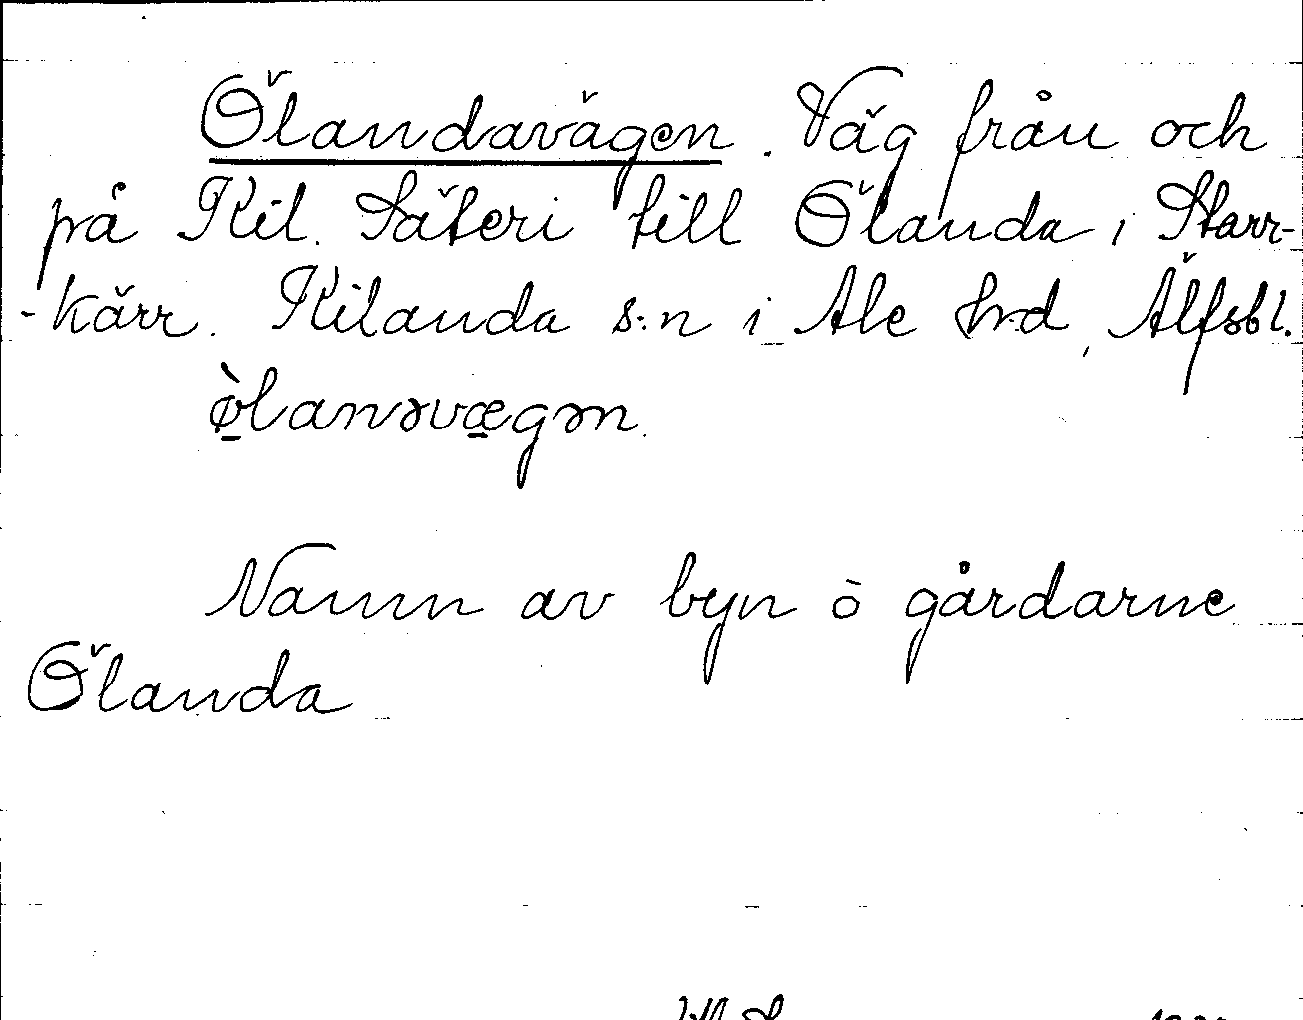 Ölandavägen. Väg från och
på Kil. Säteri till Ölanda i Starr-
-kärr. Kilanda s:n i Ale hrd, Älfsbl.
ø̀lanəvægən.
Namn av byn ò gårdarne
Ölanda